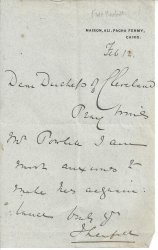 MAISON, ALI, PACHA FEHMY,
CAIRO.
Feb 12
Dear Duchess of Cleveland
Pray
Mr I am
most anxious to
make her acquain-
tance truly yrs